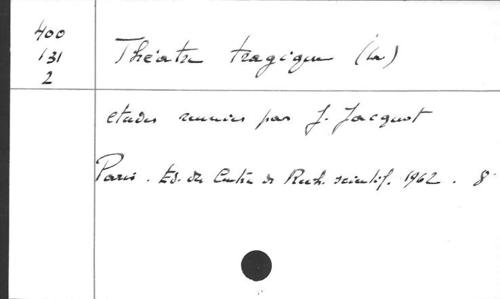 400
131
2
Théatre tragique (Le)
etudes reunies par J. Jacquot
Paris. Ed. du Centre de Rech. scientif. 1962. 8°